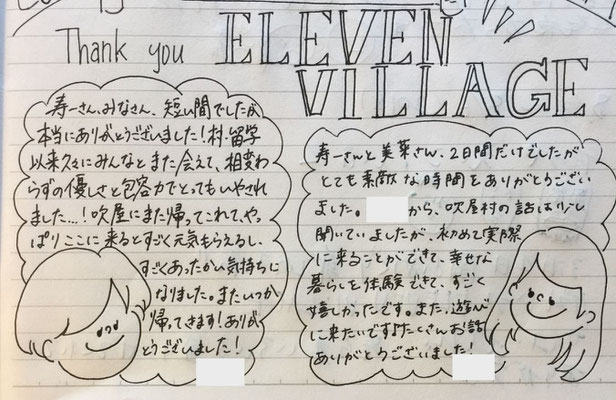 Thank you ELEVEN
VILLAGE
寿一さん、みなさん、短い間でしたが
本当にありがとうございました!村・留学
以来久々にみんなとまた会えて、相変わ
らずの優しさと包容力でとってもいやされ
ました...!吹屋にまた帰ってこれて、やっ
ぱりここに来るとすごく元気もらえるし、
すごくあったかい気持ちに
なりました。またいつか
帰ってきます!ありが
とうございました!
寿一さんと美葉さん、2日間だけでしたが
とても素敵な時間をありがとうござい
ました。 から、吹屋村の話は少し
聞いていましたが、初めて実際
に来ることができて、幸せな
暮らしを体験できて、すごく
嬉しかったです。また、遊び
に来たいです!たくさんお話
ありがとうございました!